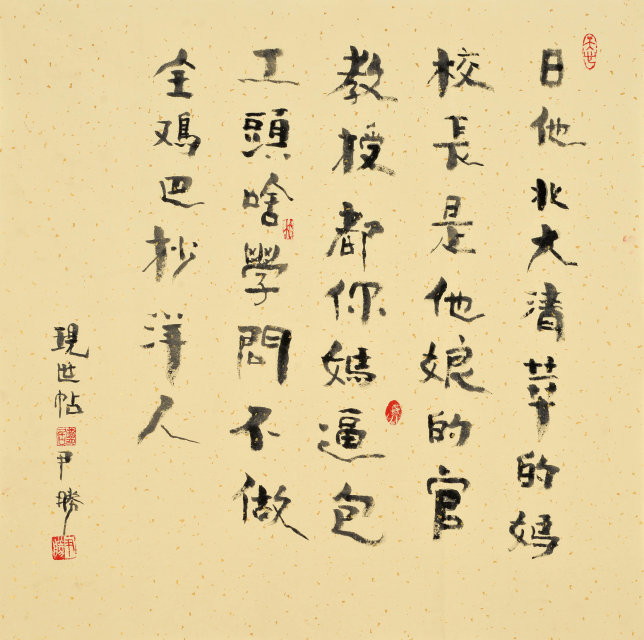 日他北大清華的媽
校長是他娘的官
教授都你媽逼包
工頭啥學問不做
全鸡巴抄洋人
現世帖
尹勝